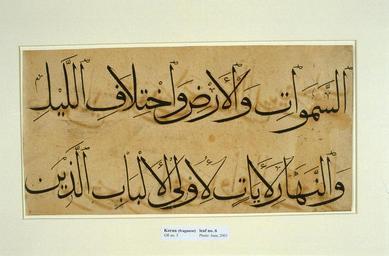 السَّمٰوَاتِ وَالْأَرْضِ وَاخْتِلَافِ اللَّيْلِ
وَالنَّهَارِ لَآيَاتٍ لِأُولِي الْأَلْبَابِ الَّذِينَ
Koran (fragment) leaf no. 6
OR no. 3 Photo: June, 2003